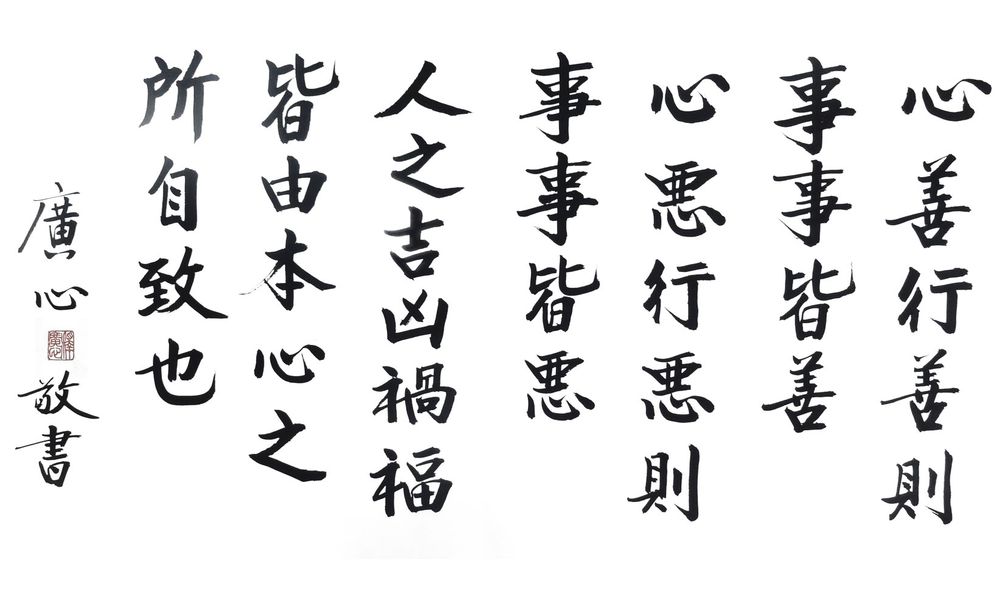 心善行善則
事事皆善
心悪行悪則
事事皆悪
人之吉凶禍福
皆由本心之
所自致也
廣心
敬書